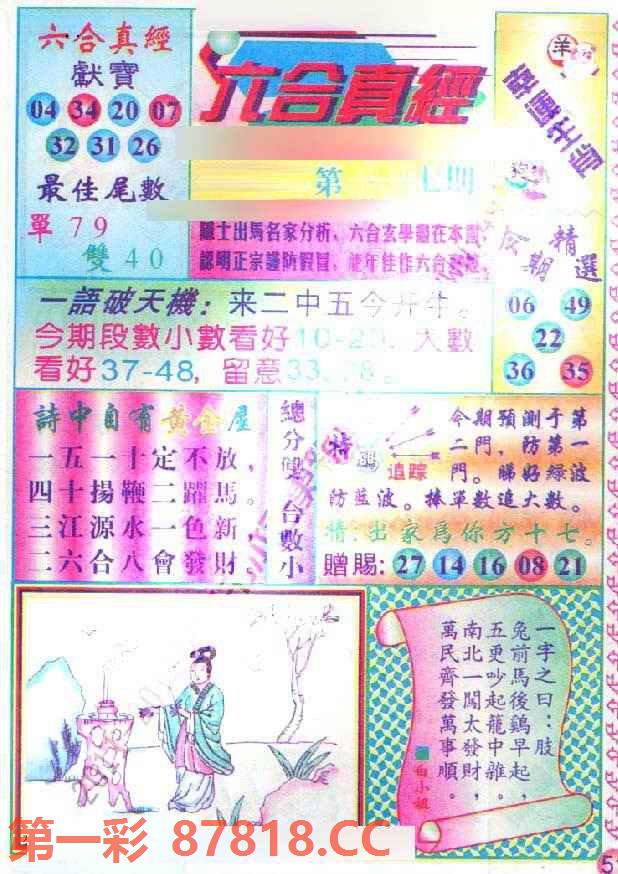 六合真經
獻寶
04 34 20 07
32 31 26
最佳尾數
單 79
雙 40
六合真經
第 期
羊
狗
士出馬名家分析，六合玄學盡在本
認明正宗謹防假冒，
期
精選
06 49
22
36 35
一語破天機：来二中五今开牛。
今期段數小數看好10-2 大數
看好37-48，留意33
詩中自有黃金屋
一五一十定不放，
四十揚鞭二躍馬。
三江源水一色新，
二六合八會發財。
總分雙
合數小
特碼追踪
今期預測于第
二門，防第一
門。睇好綠波
防藍波。捧單數追大數。
出家為你方十七。
贈賜：27 14 16 08 21
一字之曰：肢
兔前馬後鷄早起，
五更吵起龍中雜。
南北一闖太發財，
萬民齊發萬事順。
白小姐
第一彩 87818.CC
5